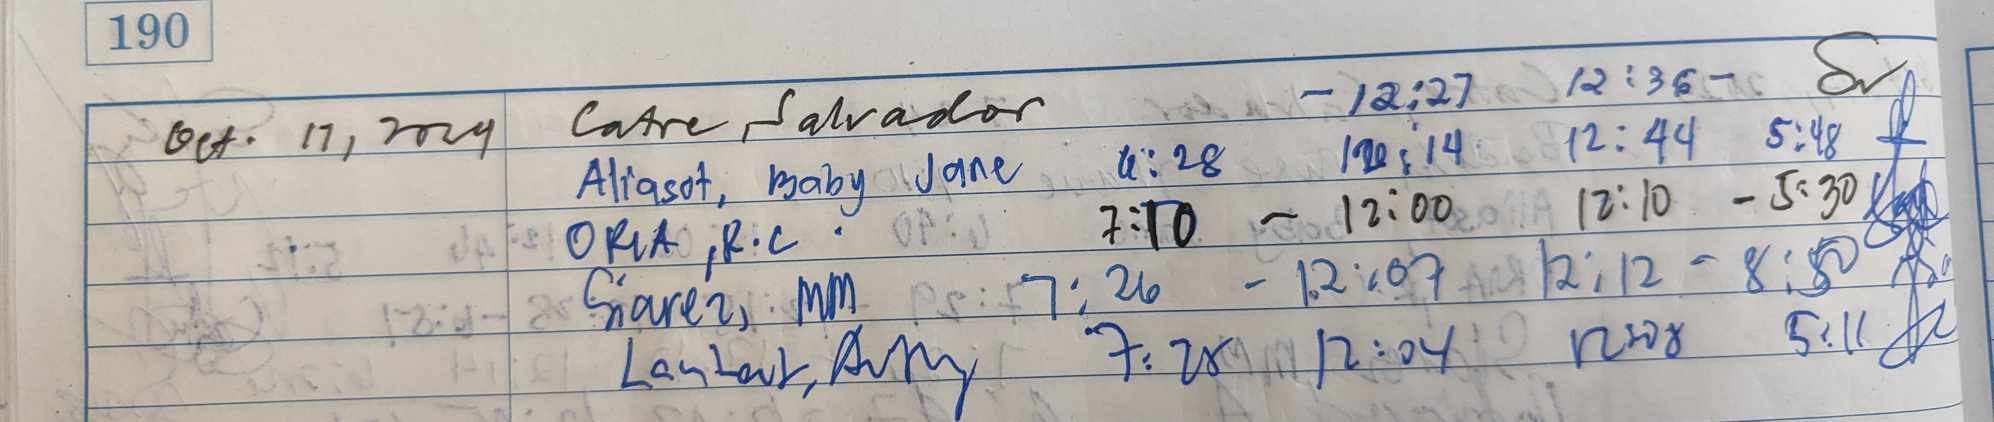 190
Oct. 17, 2024 Catre, Salvador - 12:27 12:36 -
Aliasot, Baby Jane 6:28 12:14 12:44 5:48
ORIA, R.C. 7:10 - 12:00 12:10 - 5:30
Siarez, MM 7:26 - 12:07 12:12 - 8:50
7:28 12:04 12:08 5:11